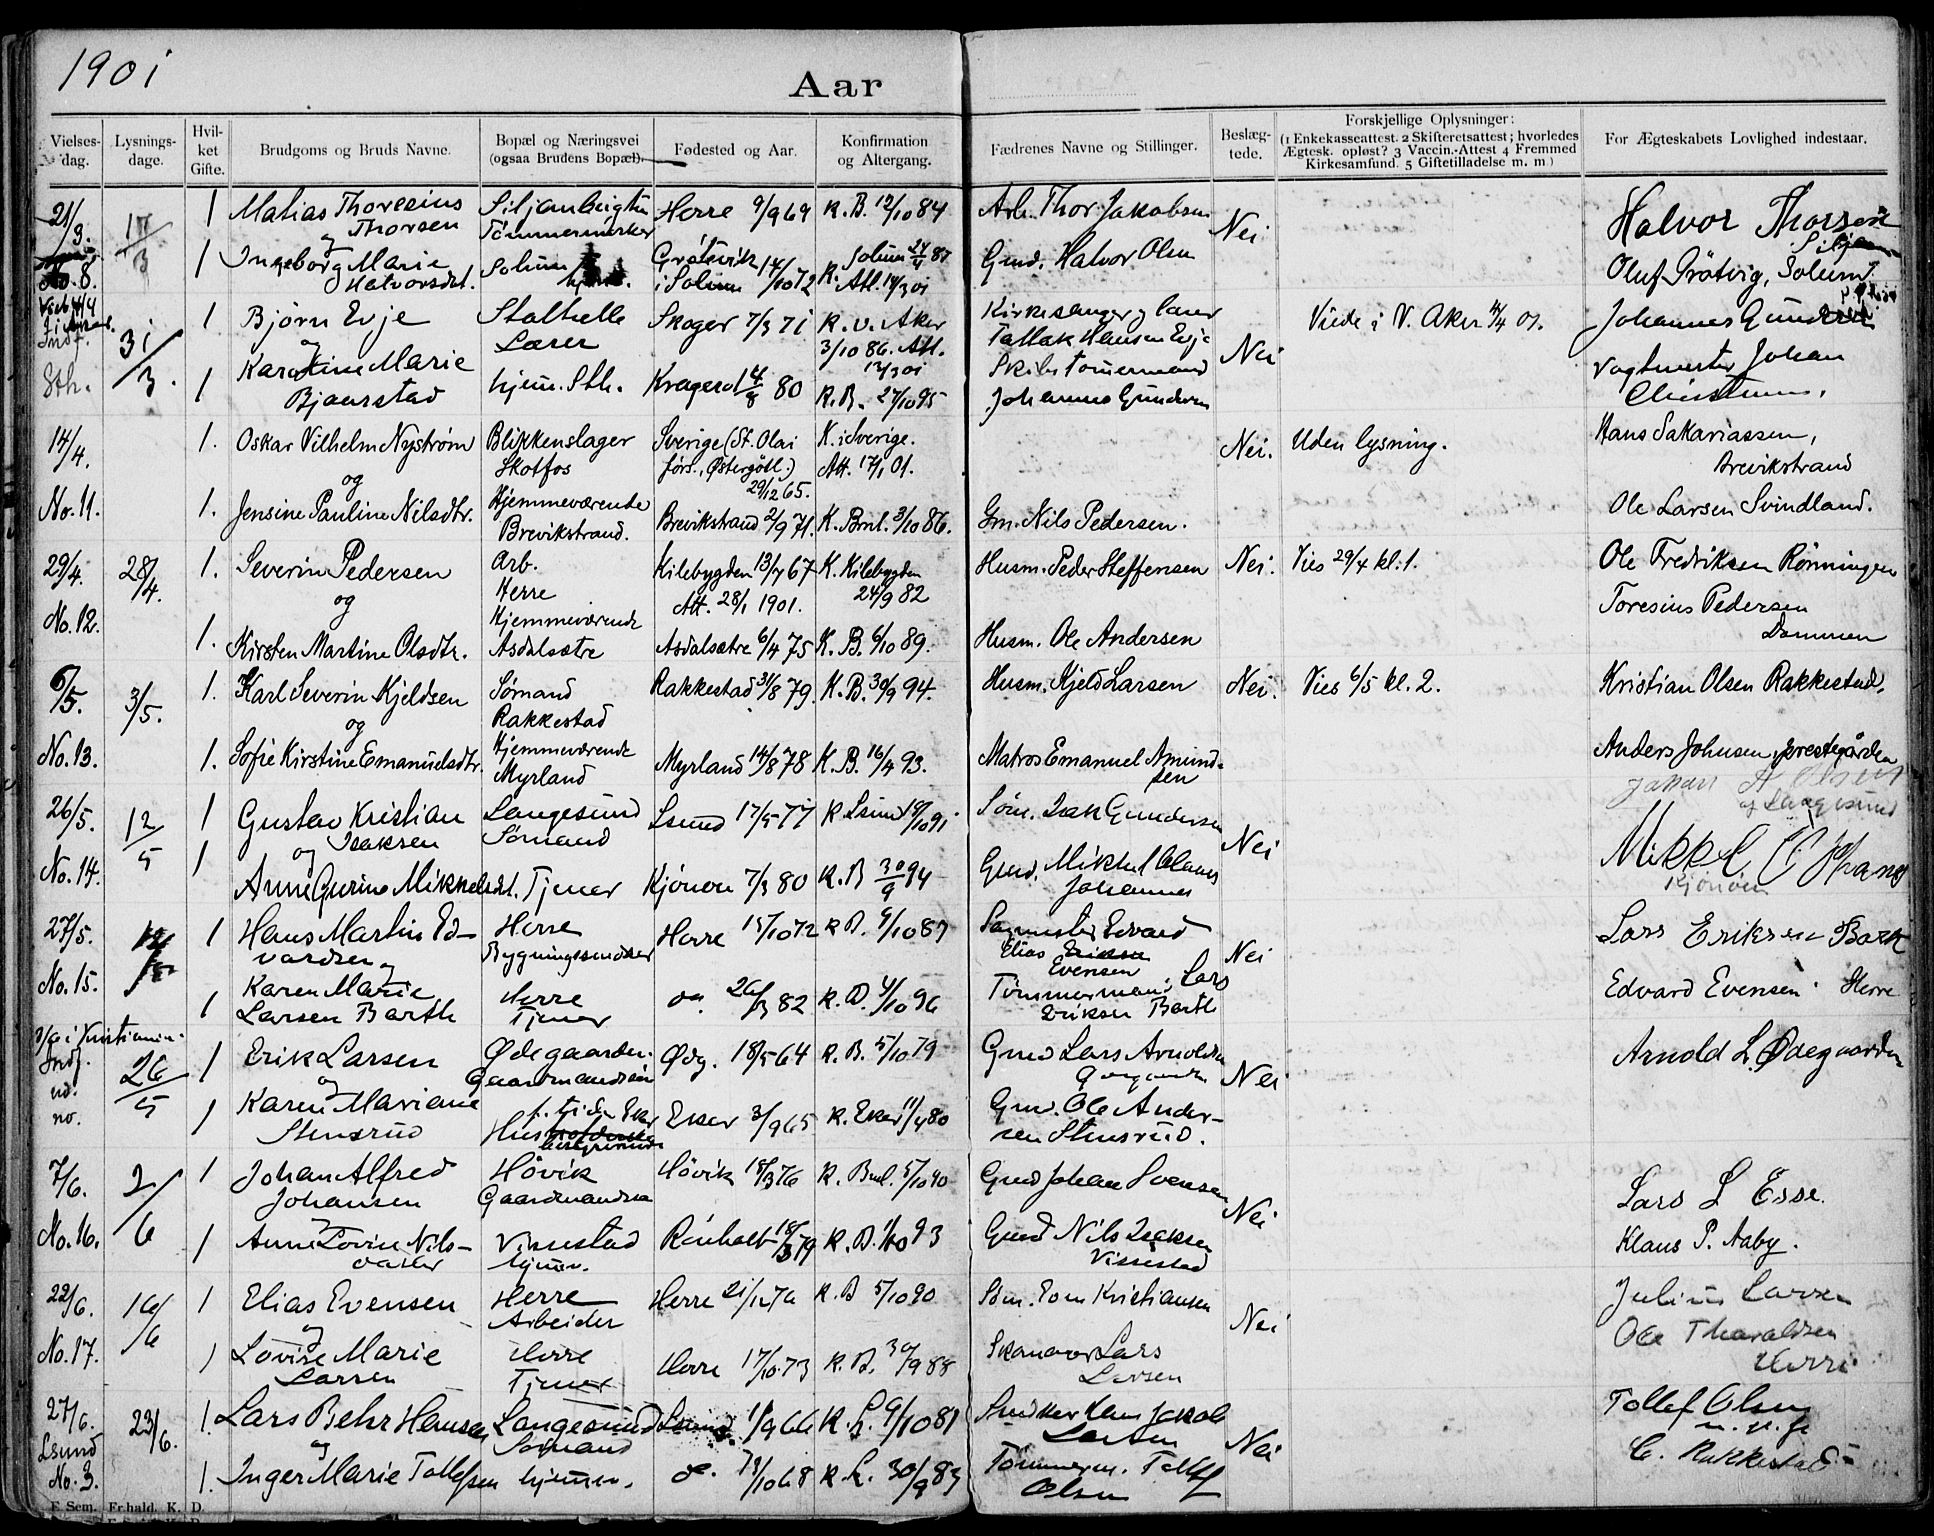 1901
Aar
Vielses-dag. Lysnings-dage. Hvil-ket Gifte. Brudgoms og Bruds Navne. Bopæl og Næringsvei (ogsaa Brudens Bopæl). Fødested og Aar. Konfirmation og Altergang. Fædrenes Navne og Stillinger. Beslæg-tede. Forskjellige Oplysninger: (1 Enkekasseattest. 2 Skifteretsattest; hvorledes Ægtesk. opløst? 3 Vaccin.-Attest 4 Fremmed Kirkesamfund. 5 Giftetilladelse m. m.) For Ægteskabets Lovlighed indestaar.
21/3. 17/3 1 Matias Thoresius Thorsen Herre 9/9 69 K. B. 12/10 84 Arb. Thor Jakobsen Nei Halvor Thorsen
og
No. 8. 1 Ingeborg Marie Halvorsdt. Solum i Solum 14/10 72 Solum Gmd. Halvor Olsen Oluf Grøtvig, Solum
31/3. 1 Bjørn Evje Stathelle Lærer Skoger 7/3 71 K. V. Aker 3/10 86. Att. Kirkesanger og lærer Tallak Hansen Evje Nei Viede i V. Aker 4/4 01. Johannes Gundersen
og
Sth. 1 Karoline Marie Bjaarstad hjem. Sth. Kragerø 14/8 80 K. B. 27/10 95 Skibstømmermand Johannes Gundersen Vagtmester Johan
14/4. 1. Oskar Vilhelm Nystrøm Blikkenslager Skotfos Sverige (St. Olai førs., Østergötl.) 29/12 65. K. i Sverige. Att. 17/1 01. Nei. Uden lysning. Hans Sakariassen, Brevikstrand
og
No. 11. 1. Jensine Pauline Nilsdtr. Hjemmeværende Brevikstrand. Brevikstrand 2/9 71. K. Bml. 3/10 86. Gm. Nils Pedersen. Ole Larsen Svindland.
29/4. 28/4. 1. Severin Pedersen Arb. Herre Kilebygden 13/7 67 Att. 28/1 1901. K. Kilebygden 24/9 82 Husm. Peder Steffensen Nei. Vies 29/4 kl. 1. Ole Fredriksen Rønningen
og
No. 12. 1. Kirsten Martine Olsdtr. Hjemmeværende Asdalsætre Asdalsætre 6/4 75 K. B. 6/10 89. Husm. Ole Andersen Toresius Pedersen Dammen
6/5. 3/5. 1. Karl Severin Kjeldsen Sømand Rakkestad Rakkestad 31/8 79. K. B. 30/9 94. Husm. Kjeld Larsen Nei. Vies 6/5 kl. 2. Kristian Olsen Rakkestad.
og
No. 13. 1. Sofie Kirstine Emanuelsdtr. Hjemmeværende Myrland Myrland 14/8 78 K. B. 16/4 93. Matros Emanuel Amundsen Anders Johnsen, prestegården
26/5. 12/5 1 Gustav Kristian Isaksen Langesund Sømand Lsund 17/5 77 K. Lsund Søm. Isak Gundersen Nei af Langesund
og
No. 14. 1 Anne Gurine Mikkelsdt. Tjener Kjønøen 7/3 80 K. B 30/9 94 Gmd. Mikkel Claus Johannes Kjønøen
27/5. 1 Hans Martin Edvardsen Herre Bygningssnedker Herre 15/10 72 K. B. 9/10 87 Edvard Elias Evensen Nei Lars Eriksen Bark
og
No. 15. 1 Karen Marie Larsen Barth Herre Tjener do. 26/3 82 K. B. 4/10 96 Tømmermand Lars Eriksen Barth Edvard Evensen Herre
i Kristiania. 26/5 1 Erik Larsen Ødegaarden. Gaardmandssøn Ødg. 18/5 64 K. B. 5/10 79 Gmd Lars Arnoldsen Nei Arnold L. Ødegaarden
og
no. 1 Karen Mariane Stensrud Eker 3/9 65 K. Eker 11/4 80 Gmd. Ole Andersen Stensrud.
7/6. 2/6 1 Johan Alfred Johansen Høvik Gaardmandssøn Høvik 18/3 76 K. Bml. 5/10 90 Gmd Johan Svensen Nei Lars L Esse.
No. 16. 1 Anne Lovise Nilsdatter Vissestad hjem. Rønholt 18/3 79 K. B. 1/10 93 Gmd Nils Isaksen Vissestad Klaus P. Aaby.
22/6. 16/6 1 Elias Evensen Herre Arbeider Herre K. B 5/10 90 Søm. Even Kristiansen Nei Julius Larsen
og
No. 17. 1 Lovise Marie Larsen Herre Tjener Herre 17/10 73 K. B. 30/9 88 Lars Larsen Ole Tharaldsen Herre
27/6. 23/6. 1. Lars Behr Hansen Langesund Sømand Lsund. 1/9 66 K. L. 9/10 81 Snedker Hans Jakob Larsen Nei Tollef Olsen
og
Lsund No. 3. 1. Inger Marie Tollefsen hjem. do. 13/10 68 K. L. 30/9 83 Tømmerm. Tollef Olsen C. Rakkestad
F. Sem. Fr.hald. K. D.